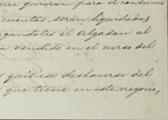 que quieran para el consumo
cuentas serán liquidadas
cargandoles el algodon al
vendido en el curso del
quisiese deshacerse del
que tiene en este negocio,